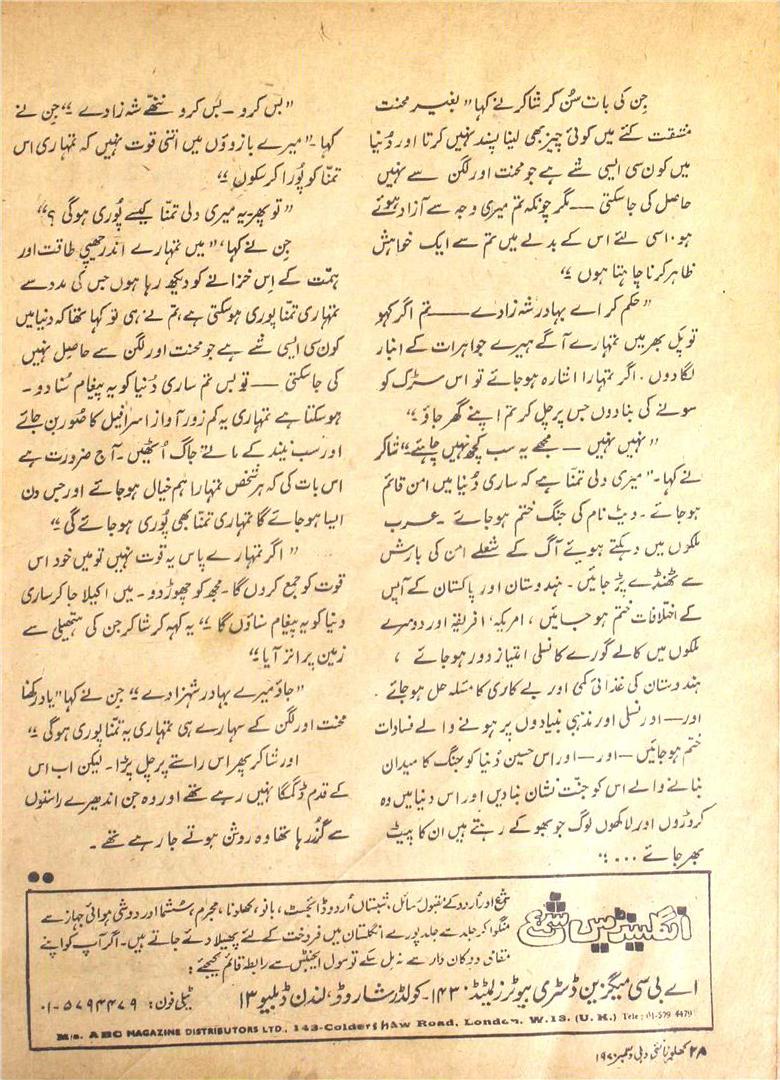 جِن کی بات سُن کر شاکر نے کہا "بغیر محنت
مشقت کئے میں کوئی چیز بھی لینا پسند نہیں کرتا اور دُنیا
میں کون سی ایسی شے ہے جو محنت اور لگن سے نہیں
حاصل کی جاسکتی — مگر چونکہ تم میری وجہ سے آزاد ہوئے
ہو، اسی لئے اس کے بدلے میں تم سے ایک خواہش
ظاہر کرنا چاہتا ہوں"
"حکم کر اے بہادر شہ زادے —— تم اگر کہو
تو پل بھر میں تمہارے آگے ہیرے جواہرات کے انبار
لگا دوں۔ اگر تمہارا اشارہ ہو جائے تو اس سڑک کو
سونے کی بنا دوں جس پر چل کر تم اپنے گھر جاؤ"
"نہیں نہیں — مجھے یہ سب کچھ نہیں چاہئے" شاکر
نے کہا۔ "میری دلی تمنّا ہے کہ ساری دُنیا میں امن قائم
ہو جائے۔ ویٹ نام کی جنگ ختم ہو جائے ۔ عرب
ملکوں میں دہکتے ہوئے آگ کے شعلے امن کی بارش
سے ٹھنڈے پڑ جائیں۔ ہندوستان اور پاکستان کے آپس
کے اختلافات ختم ہو جائیں، امریکہ، افریقہ اور دوسرے
ملکوں میں کالے گورے کا نسلی امتیاز دور ہو جائے ،
ہندوستان کی غذائی کمی اور بے کاری کا مسئلہ حل ہو جائے ۔
اور — اور نسلی اور مذہبی بنیادوں پر ہونے والے فسادات
ختم ہو جائیں — اور — اور اس حسین دُنیا کو جنگ کا میدان
بنانے والے اس کو جنّت نشان بنا دیں اور اس دنیا میں وہ
کروڑوں اور لاکھوں لوگ جو بھوکے رہتے ہیں ان کا پیٹ
بھر جائے ..."
"بس کرو — بس کرو ننھّے شہ زادے" جِن نے
کہا۔ "میرے بازوؤں میں اتنی قوت نہیں کہ تمہاری اس
تمنّا کو پُورا کر سکوں"
"تو پھر یہ میری دلی تمنّا کیسے پُوری ہوگی؟"
جِن نے کہا، "میں تمہارے اندر چھپی طاقت اور
ہمّت کے اِس خزانے کو دیکھ رہا ہوں جس کی مدد سے
تمہاری تمنّا پوری ہو سکتی ہے، تم نے ہی تو کہا تھا کہ دنیا میں
کون سی ایسی شے ہے جو محنت اور لگن سے حاصل نہیں
کی جاسکتی — تو بس تم ساری دُنیا کو یہ پیغام سُنا دو۔
ہو سکتا ہے تمہاری یہ کم زور آواز اسرافیل کا صُور بن جائے
اور سب نیند کے ماتے جاگ اُٹھیں۔ آج ضرورت ہے
اس بات کی کہ ہر شخص تمہارا ہم خیال ہو جائے اور جس دن
ایسا ہو جائے گا تمہاری تمنّا بھی پُوری ہو جائے گی"
"اگر تمہارے پاس یہ قوت نہیں تو میں خود اس
قوت کو جمع کروں گا۔ مجھ کو چھوڑ دو۔ میں اکیلا جا کر ساری
دنیا کو یہ پیغام سناؤں گا" یہ کہہ کر شاکر جن کی ہتھیلی سے
زمین پر اتر آیا"
"جاؤ میرے بہادر شہزادے" جِن نے کہا "یاد رکھنا
محنت اور لگن کے سہارے ہی تمہاری یہ تمنّا پوری ہوگی"
اور شاکر پھر اس راستے پر چل پڑا۔ لیکن اب اس
کے قدم ڈگمگا نہیں رہے تھے اور وہ جن اندھیرے راستوں
سے گُزر رہا تھا وہ روشن ہوتے جا رہے تھے۔
انگلینڈ میں شمع
شمع اور اُردو کے مقبول رسائل، شبستاں اُردو ڈائجسٹ، بانو، کھلونا، مجرم، سُشما اور دوشی ہوائی جہاز سے
منگوا کر جلد سے جلد پورے انگلستان میں فروخت کے لئے پھیلا دئے جاتے ہیں۔ اگر آپ کو اپنے
مقامی دوکان دار سے نہ مل سکے تو سول ایجنٹس سے رابطہ قائم کیجئے:
اے بی سی میگزین ڈسٹری بیوٹرز لمیٹڈ ۱۴۳۔ کولڈرشا روڈ، لندن ڈبلیو ۱۳ ٹیلی فون: ۵۷۹۴۴۷۹-۰۱
M/s. ABC MAGAZINE DISTRIBUTORS LTD., 143-Coldershaw Road, London. W.13. (U. K.) Tele: 01-579 4479
۲۸ کھلونا نئی دہلی دسمبر ۱۹۷۰